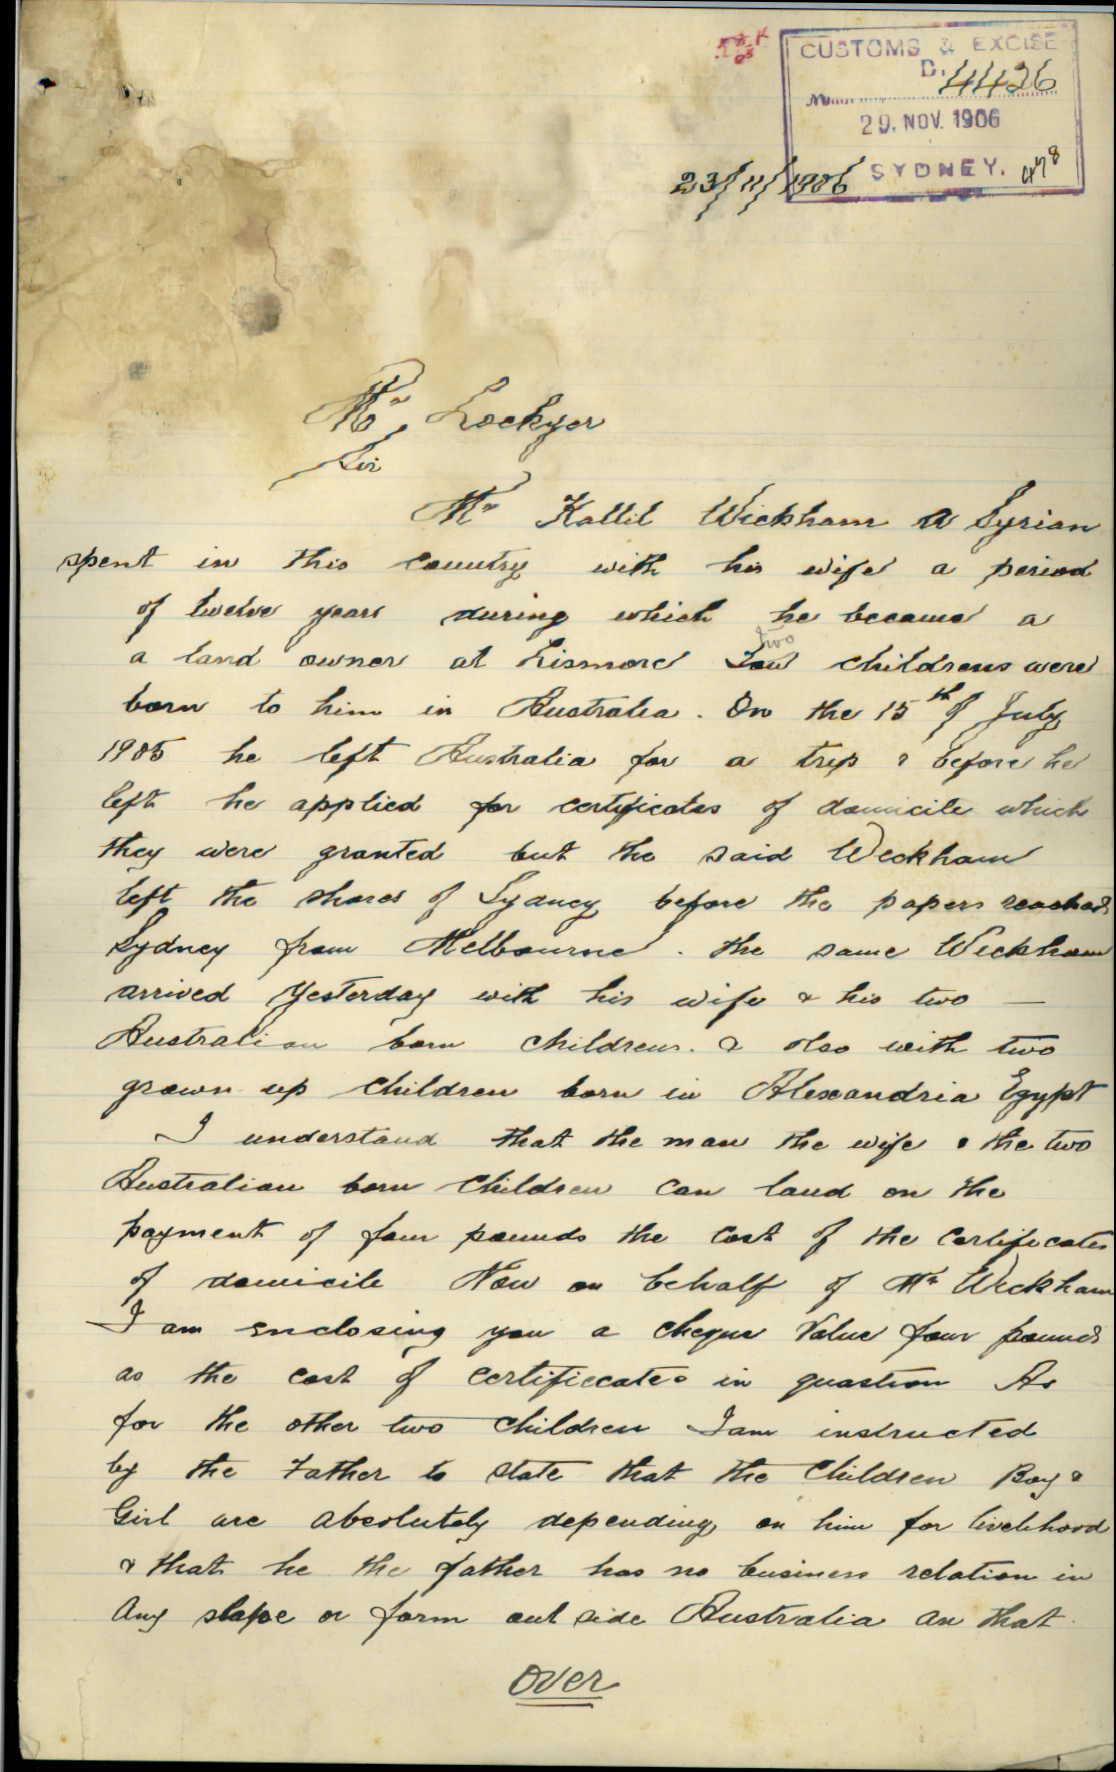 CUSTOMS & EXCISE
D. 4426
No
29. NOV. 1906
SYDNEY. 478
23/11/1906
Mr Lockyer
Sir
Mr Kallil Wickham a Syrian
spent in this country with his wife a period
of twelve years during which he became a
two
a land owner at Lismore Tow childrens were
born to him in Australia. On the 15th of July
1905 he left Australia for a trip & before he
left he applied for certificates of domicile which
they were granted but the said Weckham
left the shores of Sydney before the papers reached
Sydney from Melbourne. the same Weckham
arrived Yesterday with his wife & his two —
Australian born childrens. & also with two
grown up children born in Alexandria Egypt
I understand that the man the wife & the two
Australian born children can land on the
payment of four pounds the cost of the Certificates
of domicile Now on behalf of Mr Weckham
I am enclosing you a cheque Value four pounds
as the cost of certificates in question As
for the other two children I am instructed
by the Father to state that the children Boy &
Girl are absolutely depending on him for livelihood
& that he the father has no business relation in
any shape or form out side Australia an that
over